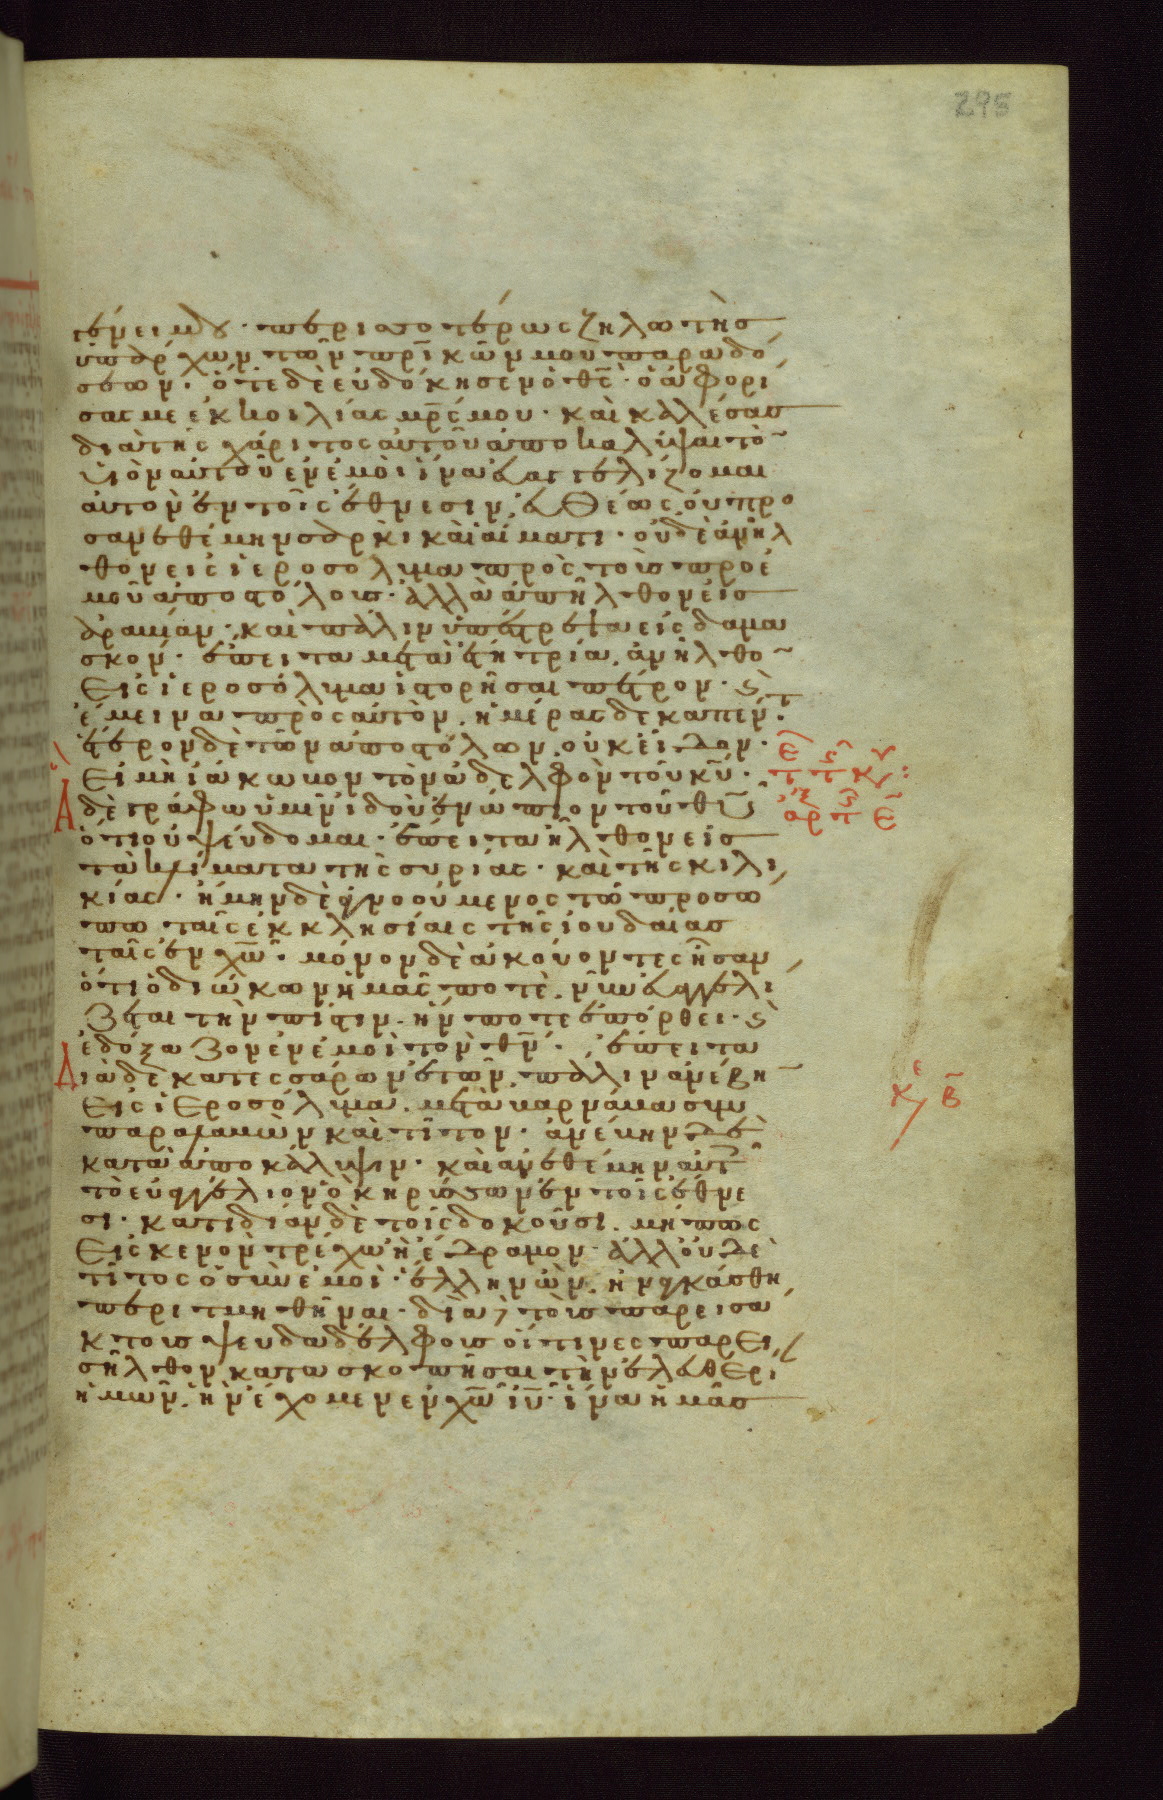 295
γένει μου· περισσοτέρως ζηλωτὴσ
ὑπάρχων τῶν πρικῶν μου παραδό
σεων· ὅτε δὲ εὐδόκησεν ὁ θς· ὁ ἀφορί
σας με ἐκ κοιλίας μρς μου· καὶ καλέσασ
διὰ τῆς χάριτος αὐτοῦ ἀποκαλύψαι τὸ
υἱὸν αὐτοῦ ἐν ἐμοὶ ἵνα εὐαγγελίζομαι
αὐτὸν ἐν τοῖς ἔθνεσιν. εὐθέως οὐ προ
σανεθέμην σαρκὶ καὶ αἵματι· οὐδὲ ἀνῆλ
θον εἰς ἱεροσόλυμα πρὸς τοὺσ πρὸ ἐ
μοῦ ἀποστόλουσ· ἀλλὰ ἀπῆλθον εἰσ
ἀραβίαν· καὶ πάλιν ὑπέστρεψα εἰς δαμα
σκόν· ἔπειτα μετὰ ἔτη τρία. ἀνῆλθο
εἰς ἱεροσόλυμα ἱστορῆσαι πέτρον· ϗ
ἔμεινα πρὸς αὐτὸν. ἡμέρας δεκαπέντ
ἕτερον δὲ τῶν ἀποστόλων. οὐκ εἶδον·
εἰ μὴ ἰάκωβον τὸν ἀδελφὸν τοῦ κυ·
Ἃ δὲ γράφω ὑμῖν ἰδοὺ ἐνώπιον τοῦ θυ
ὅτι οὐ ψεύδομαι· ἔπειτα ἦλθον εἰσ
τὰ κλίματα τῆς συρίας· καὶ τῆς κιλι
κίας· ἤμην δὲ ἀγνοούμενος τῶ προσώ
πω ταῖς ἐκκλησίαις τῆς ἰουδαίασ
ταῖς ἐν χω· μόνον δὲ ἀκούοντες ἦσαν
ὅτι ὁ διώκων ἡμᾶς ποτὲ. νῦν εὐαγγελί
ζεται τὴν πίστιν. ἥν ποτε ἐπόρθει· ϗ
ἐδόξαζον ἐν ἐμοὶ τὸν θν· ἔπειτα
Διὰ δεκατεσσάρων ἐτῶν. πάλιν ἀνέβην
εἰς ἱεροσόλυμα. μετὰ βαρνάβα συμ
παραλαβὼν καὶ τίτον· ἀνέβην δὲ
κατὰ ἀποκάλυψιν· καὶ ἀνεθέμην αὐτ
τὸ εὐαγγέλιον ὃ κηρύσσω ἐν τοῖς ἔθνε
σι· κατιδίαν δὲ τοῖς δοκοῦσι. μήπως
εἰς κενὸν τρέχω ἢ ἔδραμον· ἀλλ' οὐδὲ
τίτος ὁ σὺν ἐμοὶ· ἕλλην ὢν. ἠναγκάσθη
περιτμηθῆναι· διὰ δὲ τοὺσ παρεισά
κτουσ ψευδαδέλφουσ οἵτινες παρει
σῆλθον κατασκοπῆσαι τὴν ἐλευθερί
ἡμῶν. ἣν ἔχομεν ἐν χω ιυ· ἵνα ἡμᾶσ